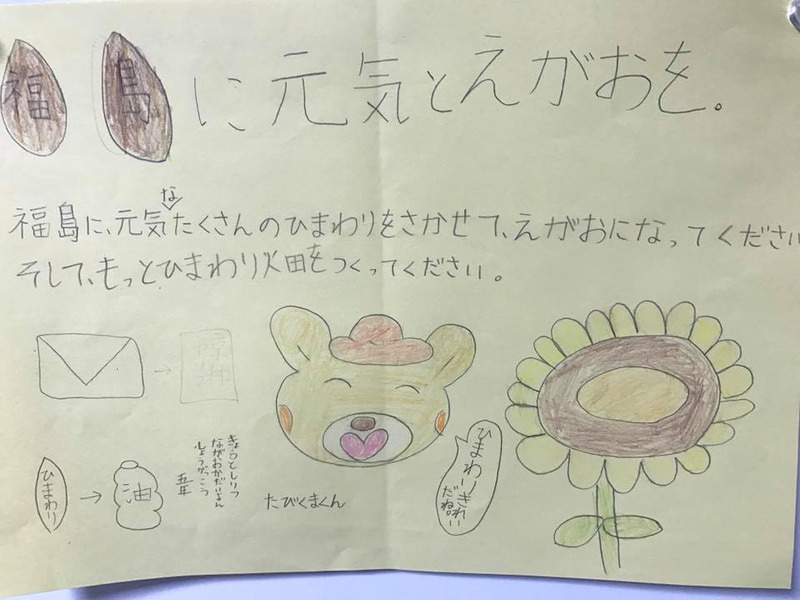 福島に元気とえがおを。
福島に、元気なたくさんのひまわりをさかせて、えがおになってください
そして、もっとひまわり畑をつくってください。
ひまわり
油
きょうとしりつ
ながおかだいよん
しょうがっこう
五年
たびくまくん
ひまわりきれい
だね。